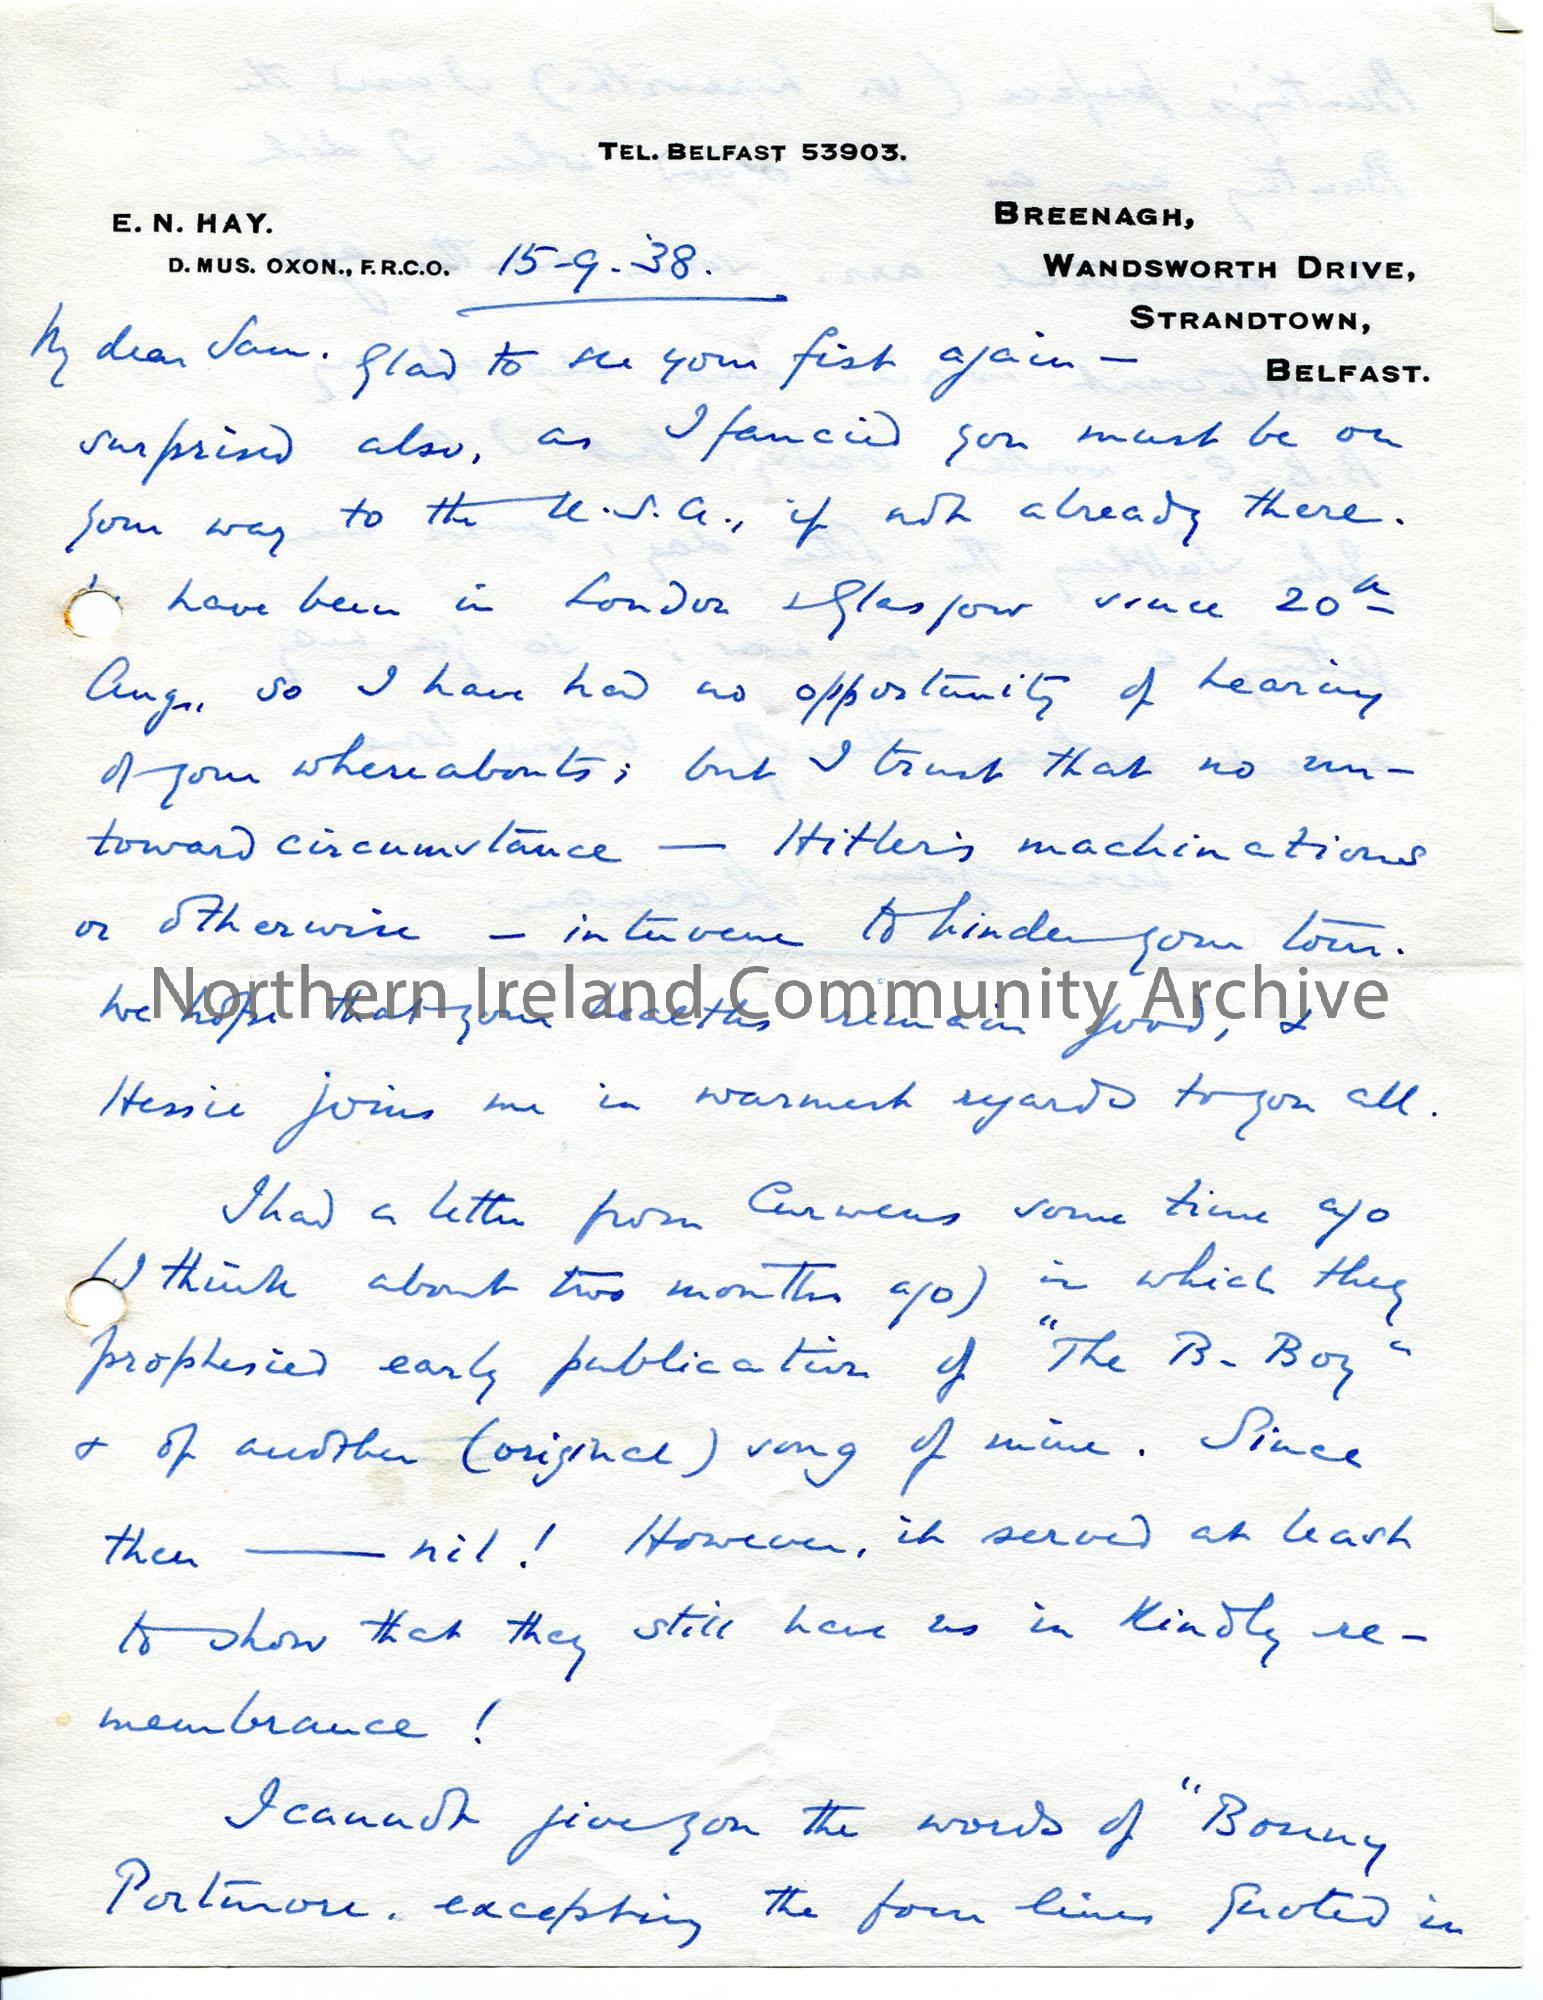 TEL. BELFAST 53903.
E. N. HAY.
D. MUS. OXON., F.R.C.O.
BREENAGH,
WANDSWORTH DRIVE,
STRANDTOWN,
BELFAST.
15-9-'38.
My dear Sam. Glad to see your fist again —
surprised also, as I fancied you must be on
your way to the U.S.A., if not already there.
have been in London & Glasgow since 20th
Aug., so I have had no opportunity of hearing
of your whereabouts; but I trust that no un-
toward circumstance — Hitler's machinations
or otherwise — intervene to hinder your tour.
We hope that your healths remain good, &
Northern Ireland Community Archive
Hessie joins me in warmest regards to you all.
I had a letter from Curwens some time ago
(I think about two months ago) in which they
prophesied early publication of "The B- Boy"
& of another (original) song of mine. Since
then —— nil! However, it served at least
to show that they still have us in kindly re-
membrance!
I cannot give you the words of "Bonny
Portmore. excepting the four lines quoted in